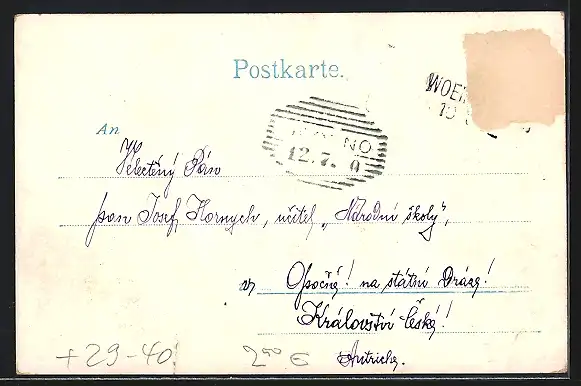 Postkarte.
WOER
10
NO
12.7. 0
An
Velectěný Pán
pan Josef Hornych, učitel „Národní školy",
v Opočně! na státní Dráze!
Království České!
Autriche.
+29-40
2⁰⁰ €